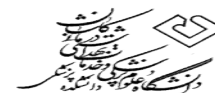 دانشگاه علوم پزشکی و خدمات بهداشتی درمانی کاشان
دانشکده پزشکی